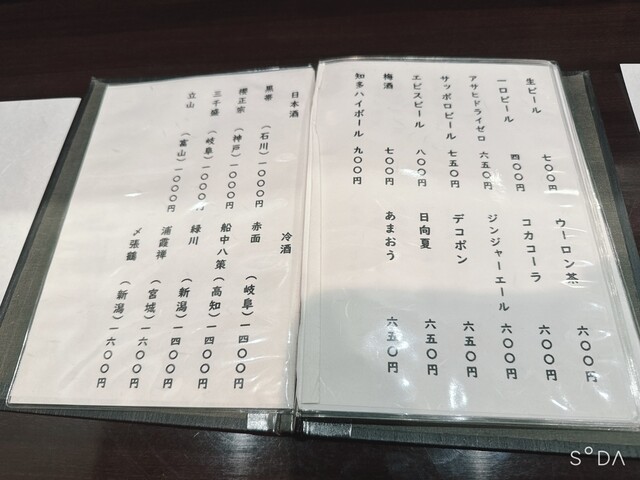 生ビール 七〇〇円
一口ビール 四〇〇円
アサヒドライゼロ 六五〇円
サッポロビール 七五〇円
エビスビール 八〇〇円
梅酒 七〇〇円
知多ハイボール 九〇〇円
ウーロン茶 六〇〇円
コカコーラ 六〇〇円
ジンジャーエール 六〇〇円
デコポン 六五〇円
日向夏 六五〇円
あまおう 六五〇円
日本酒
黒帯 (石川) 一〇〇〇円
櫻正宗 (神戸) 一〇〇〇円
三千盛 (岐阜) 一〇〇〇円
立山 (富山) 一〇〇〇円
冷酒
赤面 (岐阜) 一四〇〇円
船中八策 (高知) 一四〇〇円
緑川 (新潟) 一四〇〇円
浦霞禅 (宮城) 一六〇〇円
〆張鶴 (新潟) 一六〇〇円
SODA